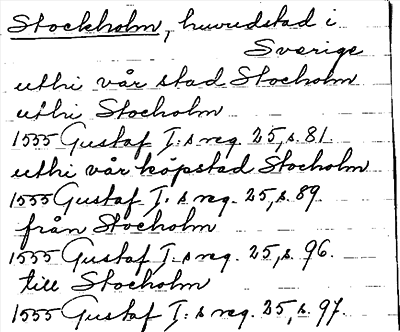 Stockholm, huvudstad i
Sverige
uthi vår stad Stocholm
uthi Stocholm
1555 Gustaf I:s reg. 25, s. 81.
uthi vår köpstad Stocholm
1555 Gustaf I:s reg. 25, s. 89.
från Stocholm
1555 Gustaf I:s reg. 25, s. 96.
till Stocholm
1555 Gustaf I:s reg. 25, s. 97.